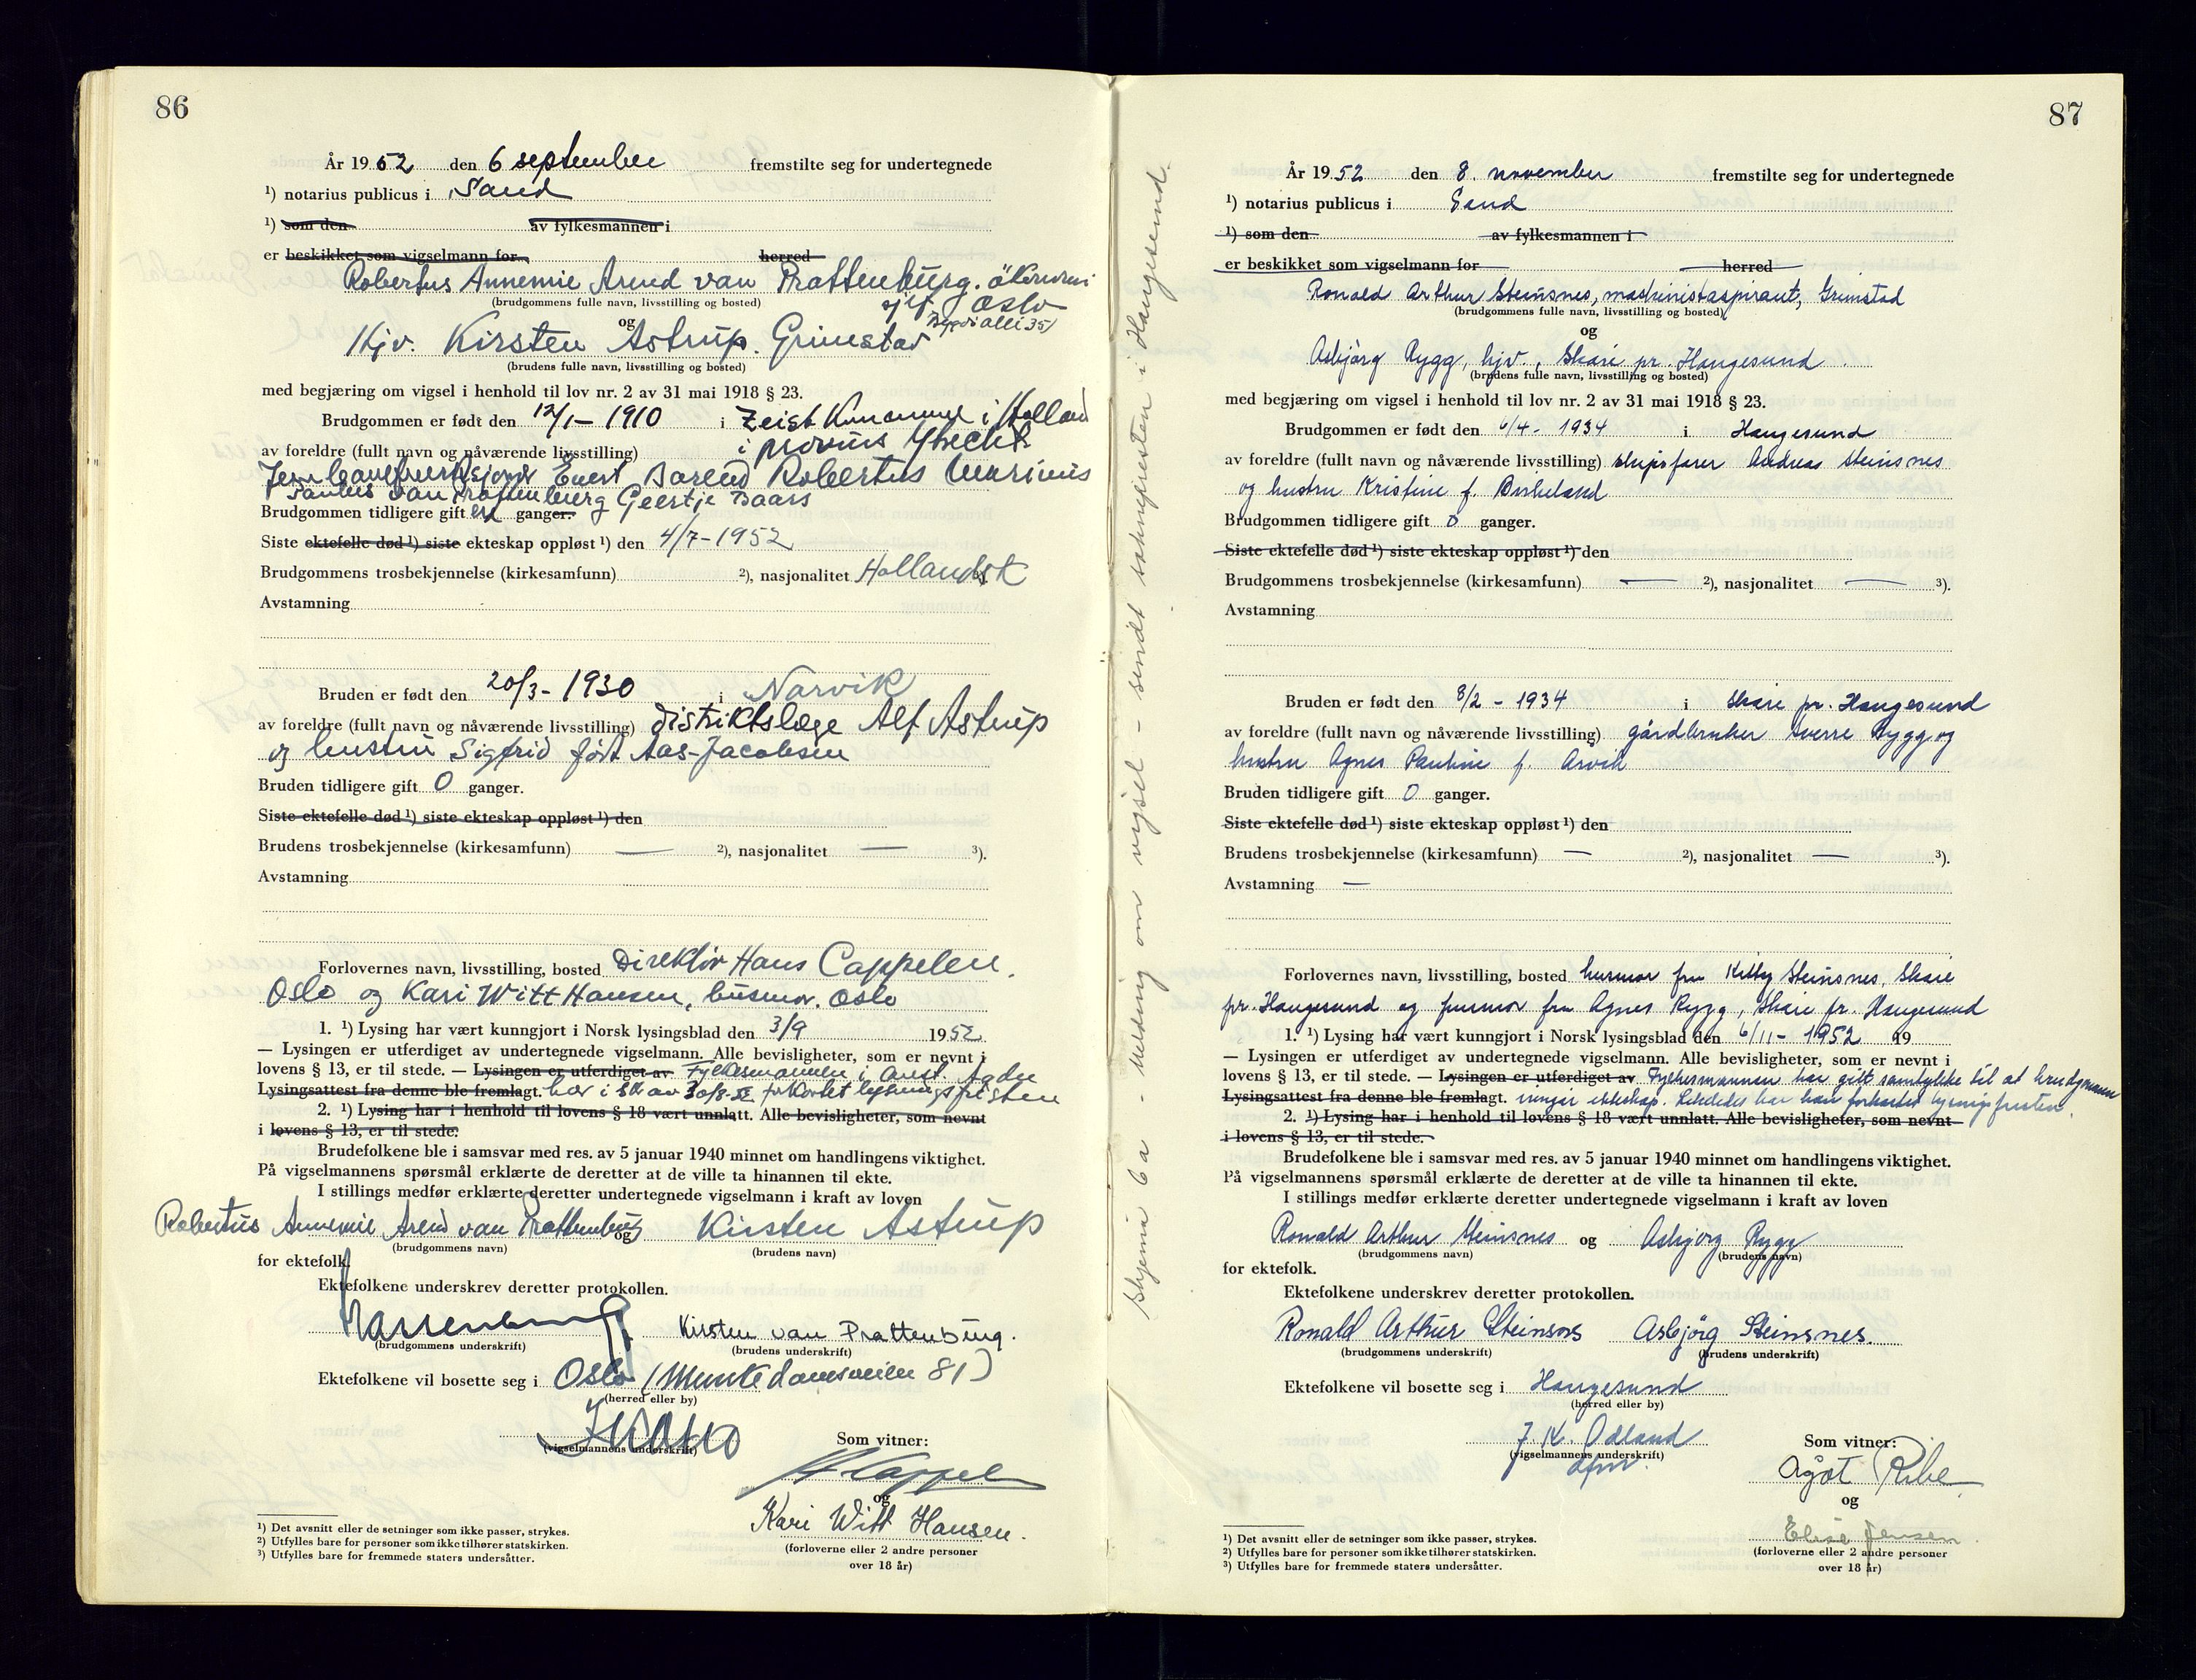 86
År 1952 den 6 september fremstilte seg for undertegnede
¹) notarius publicus i Sand
¹) som den av fylkesmannen i
er beskikket som vigselmann for herred
Robertus Annemie Arend van Prattenburg. økonomi
(brudgommens fulle navn, livsstilling og bosted) sjef Oslo
og Bygdø alle 35)
Hjv. Kirsten Astrup. Grimstad
(brudens fulle navn, livsstilling og bosted)
med begjæring om vigsel i henhold til lov nr. 2 av 31 mai 1918 § 23.
Brudgommen er født den 12/1-1910 i Zeist Kommune i Holland
av foreldre (fullt navn og nåværende livsstilling) i provins
Evert Barend Robertus Marinus
Paulus van Prattenburg Geertje Baars
Brudgommen tidligere gift en ganger.
Siste ektefelle død ¹) siste ekteskap oppløst ¹) den 4/7-1952
Brudgommens trosbekjennelse (kirkesamfunn) ²), nasjonalitet Hollandsk
Avstamning
Bruden er født den 20/3-1930 i Narvik
av foreldre (fullt navn og nåværende livsstilling) distriktslæge Alf Astrup
og hustru Sigfrid født Aas-Jacobsen
Bruden tidligere gift 0 ganger.
Siste ektefelle død ¹) siste ekteskap oppløst ¹) den
Brudens trosbekjennelse (kirkesamfunn) — ²), nasjonalitet — ³).
Avstamning
Forlovernes navn, livsstilling, bosted Direktør Hans Cappelen.
Oslo og Kari Witt Hansen, husmor. Oslo
1. ¹) Lysing har vært kunngjort i Norsk lysingsblad den 3/9 1952
— Lysingen er utferdiget av undertegnede vigselmann. Alle bevisligheter, som er nevnt i
lovens § 13, er til stede. — Lysingen er utferdiget av Fylkesmannen i Aust. Agder
Lysingsattest fra denne ble fremlagt. har i skr av 30/8-52 forkortet lysningsfristen
2. ¹) Lysing har i henhold til lovens § 18 vært unnlatt. Alle bevisligheter, som nevnt
i lovens § 13, er til stede.
Brudefolkene ble i samsvar med res. av 5 januar 1940 minnet om handlingens viktighet.
På vigselmannens spørsmål erklærte de deretter at de ville ta hinannen til ekte.
I stillings medfør erklærte deretter undertegnede vigselmann i kraft av loven
Robertus Annemie Arend van Prattenburg og Kirsten Astrup
(brudgommens navn) (brudens navn)
for ektefolk.
Ektefolkene underskrev deretter protokollen.
Kirsten van Prattenburg.
(brudgommens underskrift) (brudens underskrift)
Ektefolkene vil bosette seg i Oslo (Munkedamsveien 81)
(herred eller by)
(vigselmannens underskrift)
Som vitner:
H Cappelen
og
Kari Witt Hansen.
(forloverne eller 2 andre personer
over 18 år)
¹) Det avsnitt eller de setninger som ikke passer, strykes.
²) Utfylles bare for personer som ikke tilhører statskirken.
³) Utfylles bare for fremmede staters undersåtter.
skjema 6 a - melding om vigsel - sendt soknepresten i Haugesund.
87
År 1952 den 8. november fremstilte seg for undertegnede
¹) notarius publicus i Sand
¹) som den av fylkesmannen i
er beskikket som vigselmann for herred
Ronald Arthur Steinsnes, maskinistaspirant, Grimstad
(brudgommens fulle navn, livsstilling og bosted)
og
Asbjørg Rygg, hjv., Skåre pr. Haugesund.
(brudens fulle navn, livsstilling og bosted)
med begjæring om vigsel i henhold til lov nr. 2 av 31 mai 1918 § 23.
Brudgommen er født den 6/4-1934 i Haugesund
av foreldre (fullt navn og nåværende livsstilling) skipsfører Andreas Steinsnes
og hustru Kristine f. Birkeland
Brudgommen tidligere gift 0 ganger.
Siste ektefelle død ¹) siste ekteskap oppløst ¹) den
Brudgommens trosbekjennelse (kirkesamfunn) — ²), nasjonalitet — ³).
Avstamning
Bruden er født den 8/2-1934 i Skåre pr. Haugesund
av foreldre (fullt navn og nåværende livsstilling) gårdbruker Sverre Rygg og
hustru Agnes Pauline f. Arvik
Bruden tidligere gift 0 ganger.
Siste ektefelle død ¹) siste ekteskap oppløst ¹) den
Brudens trosbekjennelse (kirkesamfunn) — ²), nasjonalitet — ³).
Avstamning —
Forlovernes navn, livsstilling, bosted husmor fru Kitty Steinsnes, Skåre
pr. Haugesund og husmor fru Agnes Rygg, Skåre pr. Haugesund
1. ¹) Lysing har vært kunngjort i Norsk lysingsblad den 6/11-1952 19
— Lysingen er utferdiget av undertegnede vigselmann. Alle bevisligheter, som er nevnt i
lovens § 13, er til stede. — Lysingen er utferdiget av Fylkesmannen har gitt samtykke til at brudgommen
Lysingsattest fra denne ble fremlagt. inngår ekteskap. Likeledes har han forkortet lysningsfristen.
2. ¹) Lysing har i henhold til lovens § 18 vært unnlatt. Alle bevisligheter, som nevnt
i lovens § 13, er til stede.
Brudefolkene ble i samsvar med res. av 5 januar 1940 minnet om handlingens viktighet.
På vigselmannens spørsmål erklærte de deretter at de ville ta hinannen til ekte.
I stillings medfør erklærte deretter undertegnede vigselmann i kraft av loven
Ronald Arthur Steinsnes og Asbjørg Rygg
(brudgommens navn) (brudens navn)
for ektefolk.
Ektefolkene underskrev deretter protokollen.
Ronald Arthur Steinsnes Asbjørg Steinsnes.
(brudgommens underskrift) (brudens underskrift)
Ektefolkene vil bosette seg i Haugesund
(herred eller by)
J. K. Ødland
(vigselmannens underskrift)
dfm.
Som vitner:
Ågot Ribe
og
Elise Jensen
(forloverne eller 2 andre personer
over 18 år)
¹) Det avsnitt eller de setninger som ikke passer, strykes.
²) Utfylles bare for personer som ikke tilhører statskirken.
³) Utfylles bare for fremmede staters undersåtter.